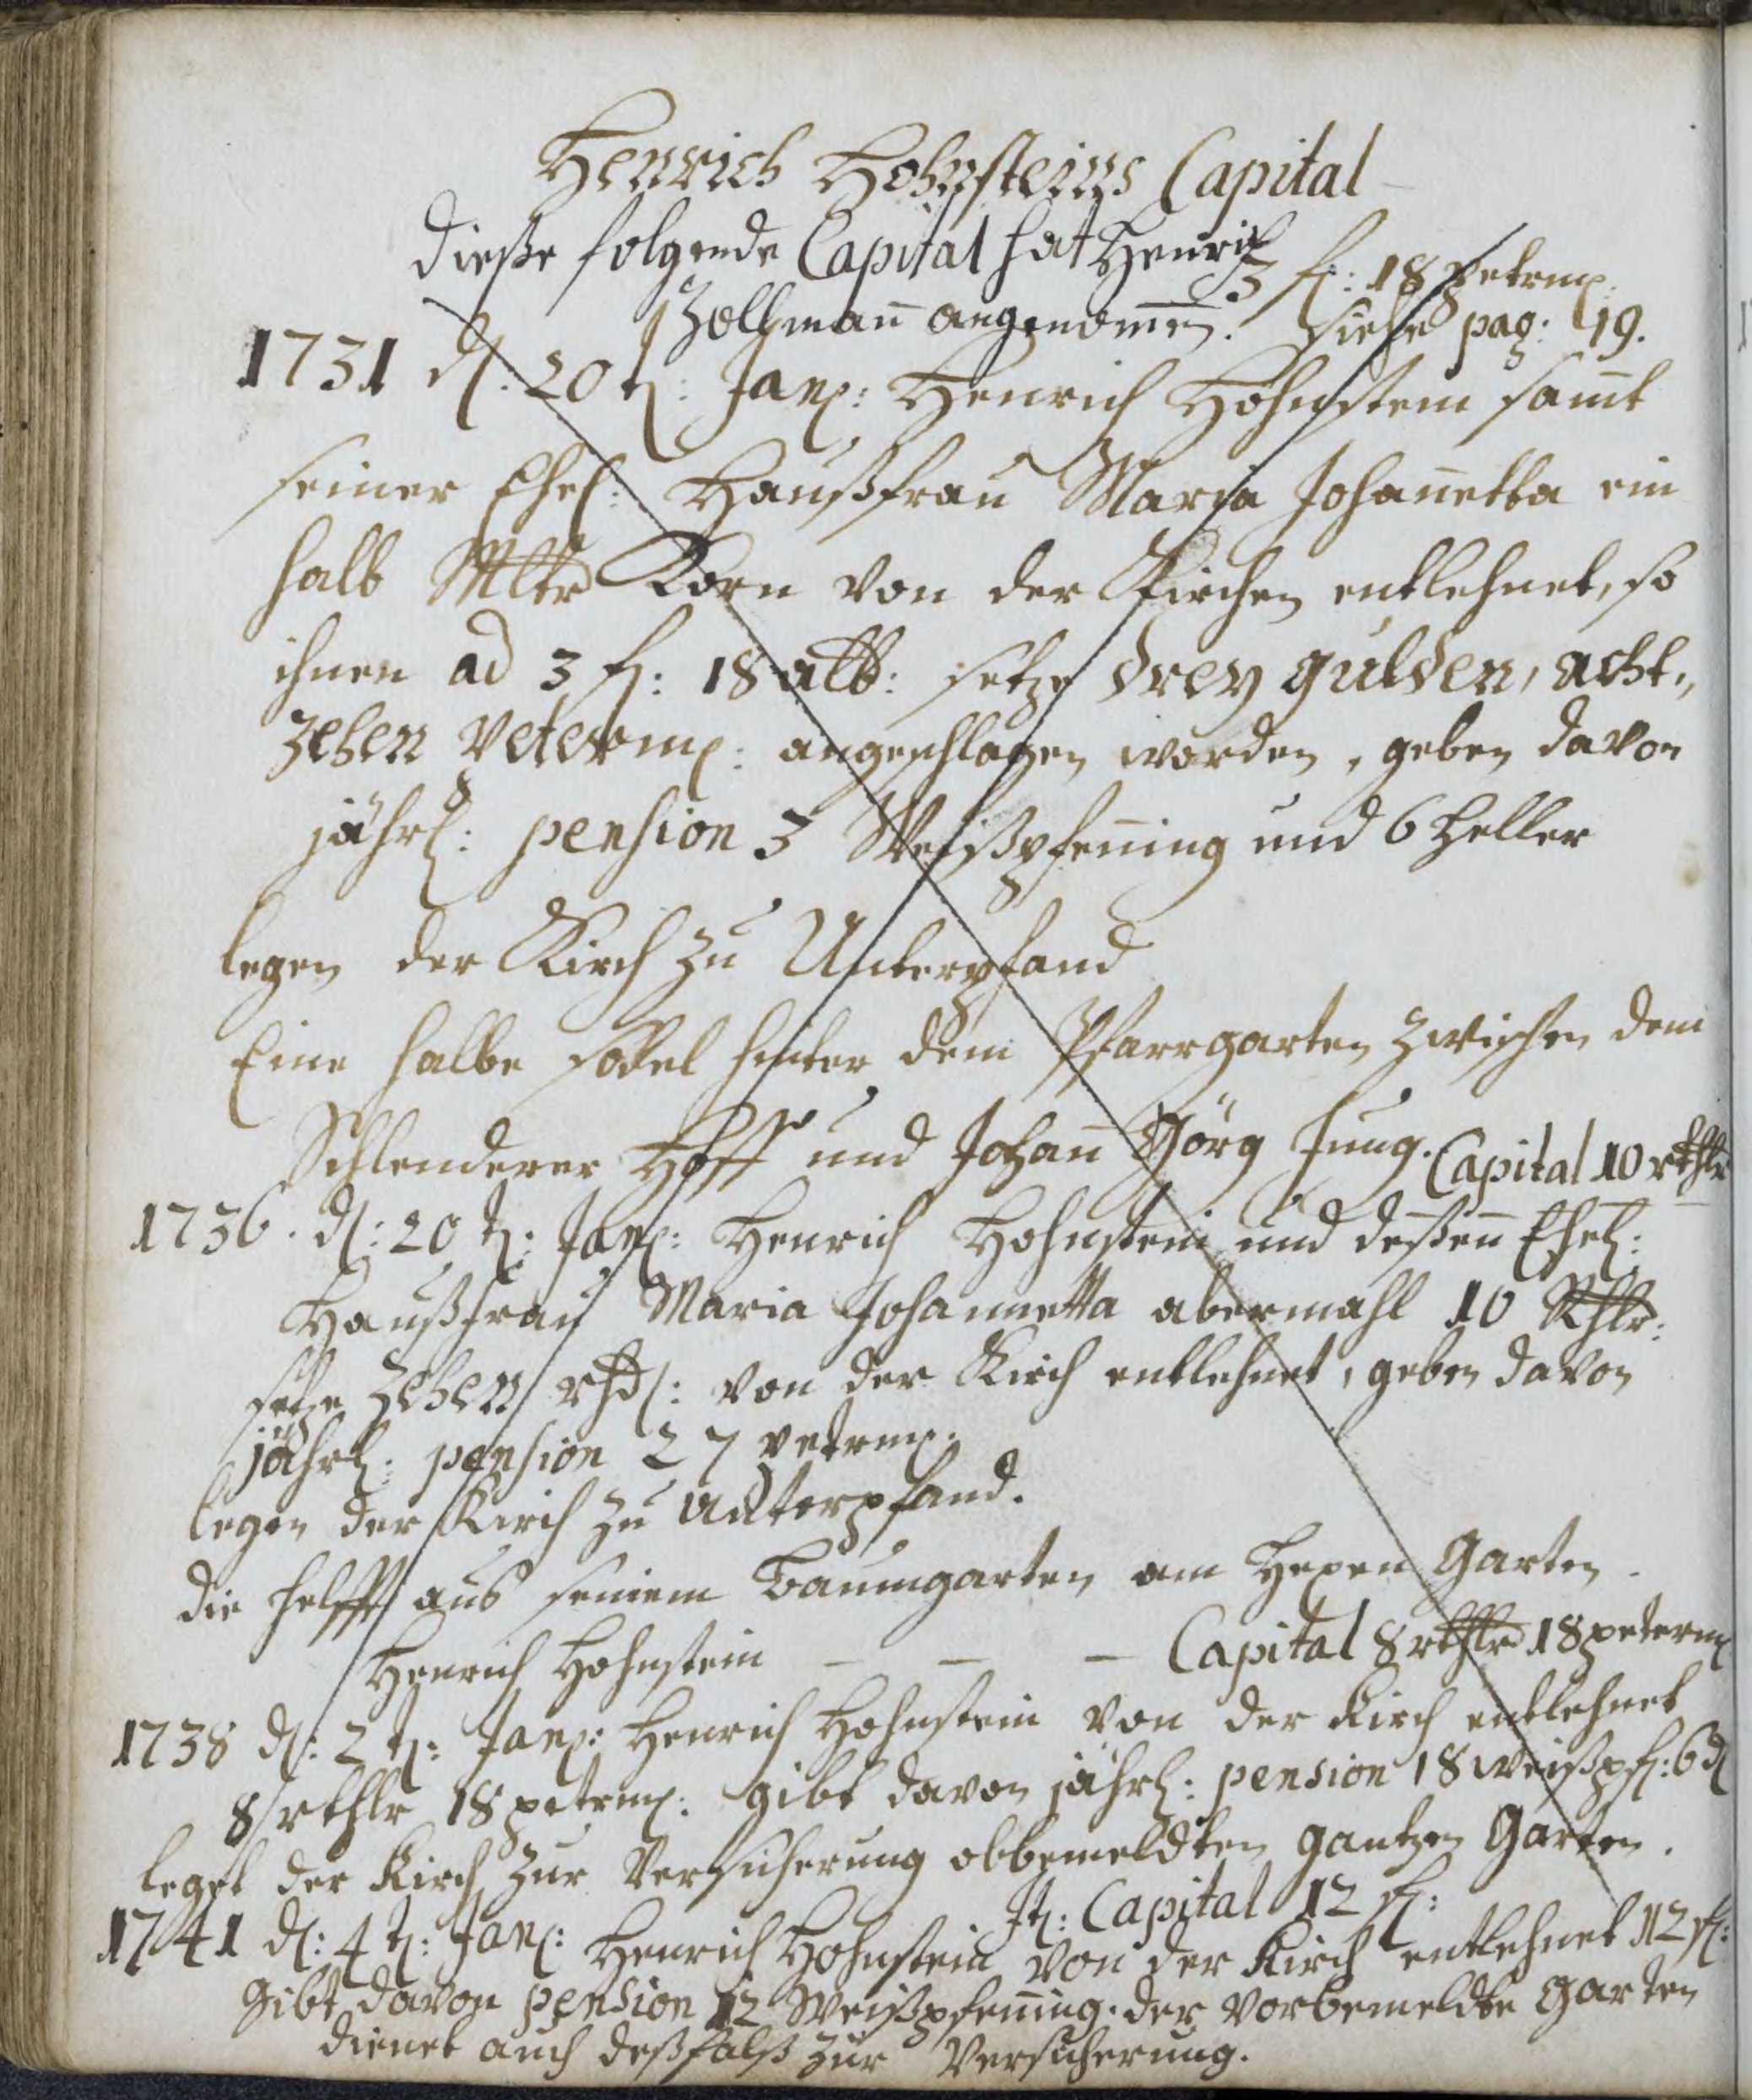 Henrich Hohnsteins Capital
Dieße folgende Capital hat Henrich
3 fl: 18 petrm:
Zollmañ angenom̃en. Siehe pag: 19.
1731 d: 20 t: Jan: Henrich Hohnstein sam̃t
seiner Ehel: Haußfrau Maria Johañetta ein
halb Mltr Korn von der Kirchen entlehnet, so
ihnen ad 3 fl: 18 alb: setze drey gulden, acht,,
zehen peterm: angeschlagen worden, geben davon
jährl: pension 3 Weißpfeñing und 6 heller
legen der Kirch zu Unterpfand
Eine halbe sodel hinter dem Pfarrgarten zwischen dem
Schlenderer Hoff und Johañ Görg Jung.
Capital 10 rthlr
1736. d: 20 t: Jan: Henrich Hohnstein und deßen Ehel:
Haußfrau Maria Johannetta abermahl 10 Rthlr:
setze zehen rhd: von der Kirch entlehnet, geben davon
jährl: pension 27 petrm:
legen der Kirch zu Unterpfand.
die helfft aus seinem Baumgarten am Hexen Garten.
Henrich Hohnstein — — — Capital 8 rthlr 18 peterm
1738 d: 2 t: Jan: Henrich Hohnstein von der Kirch entlehnet
8 rthlr 18 petrm: gibt davon jährl: pension 18 weißpf: 6 d
leget der Kirch zur Versicherung obbemeldten gantzen Garten.
It: Capital 12 fl:
1741 d: 4 t: Jan: Henrich Hohnstein von der Kirch entlehnet 12 fl:
gibt davon pension 12 Weißpfeñing. der vorbemeldte Garten
dienet auch deßfalß zur Versicherung.